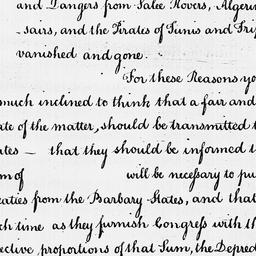 and Dangers from Salee Rovers, Algerin
-sairs, and the Pirates of Tunis and Tri
vanished and gone.
For these Reasons yo
much inclined to think that a fair and
ate of the matter, should be transmitted t
ates — that they should be informed t
m of will be necessary to pu
eaties from the Barbary States, and that
ch time as they furnish Congress with th
ective proportions of that Sum, the Depred